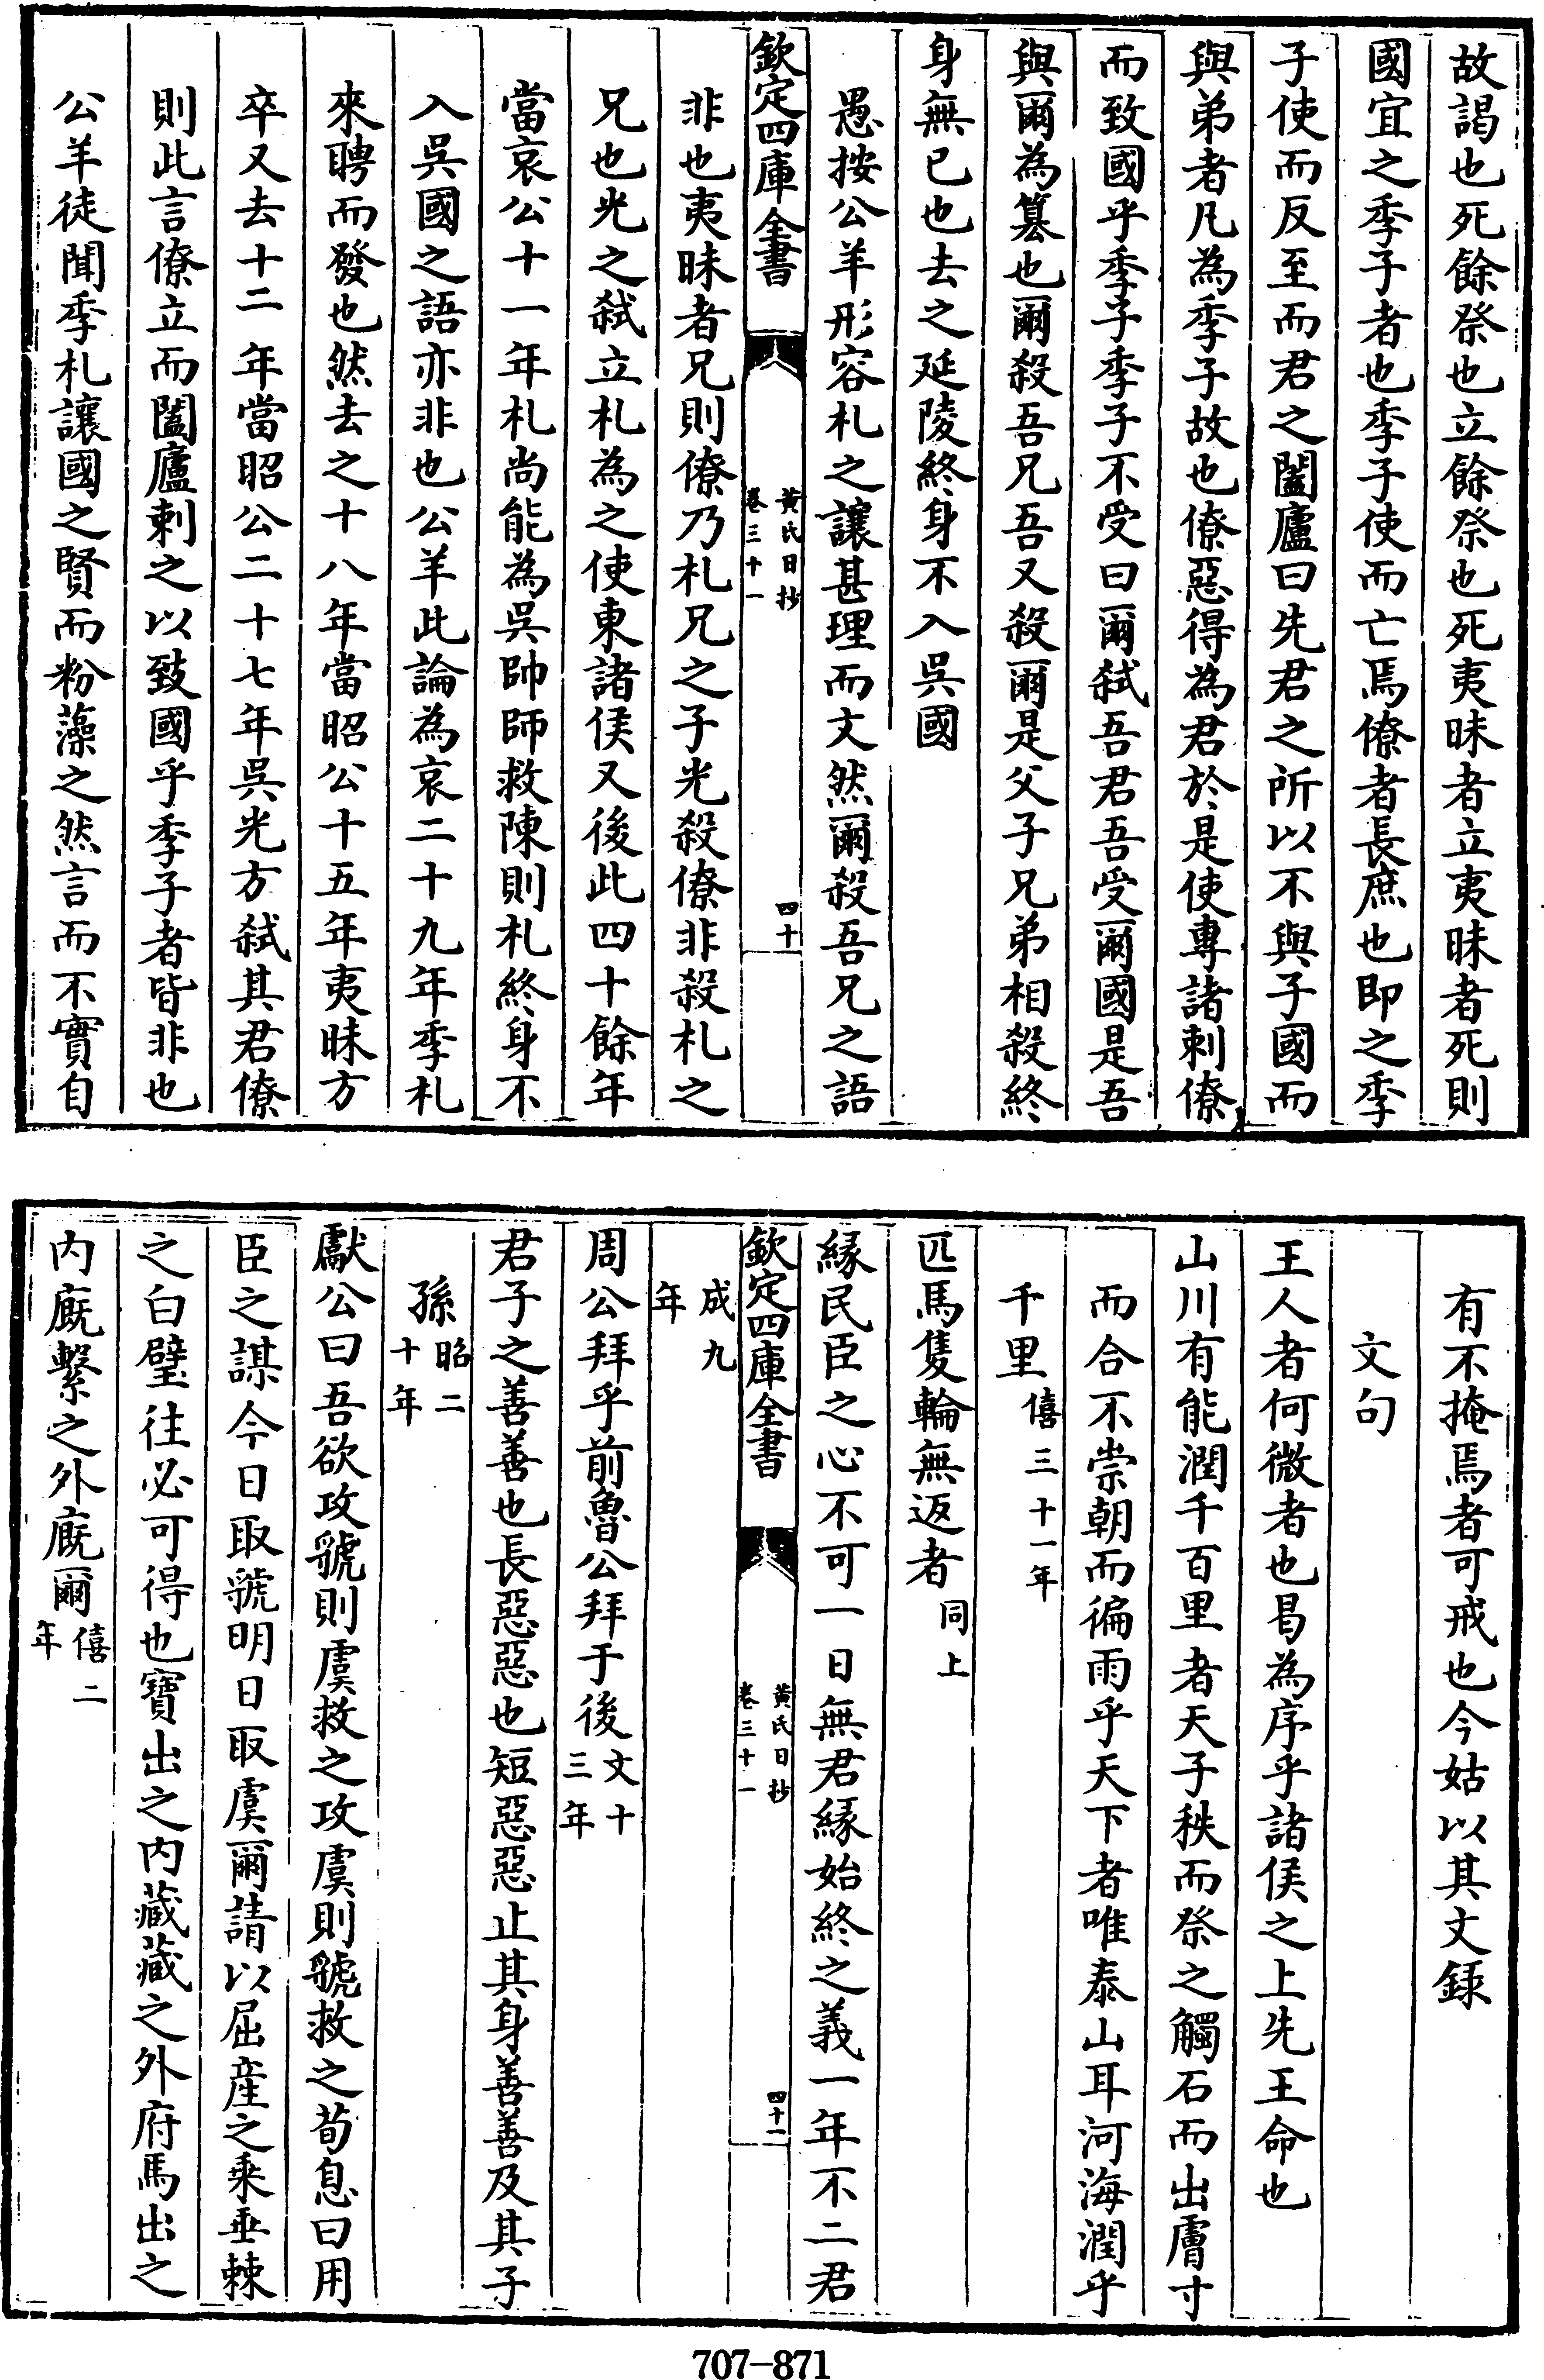 故謁也死餘祭也立餘祭也死夷昧者立夷昧者死則
國宜之季子者也季子使而亡焉僚者長庶也即之季
子使而反至而君之闔廬曰先君之所以不與子國而
與弟者凡為季子故也僚惡得為君於是使專諸刺僚
而致國乎季子季子不受曰爾弑吾君吾受爾國是吾
與爾為簒也爾殺吾兄吾又殺爾是父子兄弟相殺終
身無已也去之延陵終身不入吳國
愚按公羊形容札之讓甚理而文然爾殺吾兄之語
欽定四庫全書
黃氏日抄
卷三十一
四十
非也夷昧者兄則僚乃札兄之子光殺僚非殺札之
兄也光之弑立札為之使東諸侯又後此四十餘年
當哀公十一年札尚能為吳帥師救陳則札終身不
入吳國之語亦非也公羊此論為哀二十九年季札
來聘而發也然去之十八年當昭公十五年夷昧方
卒又去十二年當昭公二十七年吳光方弑其君僚
則此言僚立而闔廬刺之以致國乎季子者皆非也
公羊徒聞季札讓國之賢而粉藻之然言而不實自
有不掩焉者可戒也今姑以其文錄
文句
王人者何微者也曷為序乎諸侯之上先王命也
山川有能潤千百里者天子秩而祭之觸石而出膚寸
而合不崇朝而徧雨乎天下者唯泰山耳河海潤乎
千里僖三十一年
匹馬隻輪無返者同上
緣民臣之心不可一日無君緣始終之義一年不二君
欽定四庫全書
黃氏日抄
卷三十一
四十一
成九年
周公拜乎前魯公拜于後文十三年
君子之善善也長惡惡也短惡惡止其身善善及其子
孫昭二十年
獻公曰吾欲攻虢則虞救之攻虞則虢救之荀息曰用
臣之謀今日取虢明日取虞爾請以屈產之乘垂棘
之白璧往必可得也寶出之内藏藏之外府馬出之
内廐繫之外廐爾僖二年
707-871